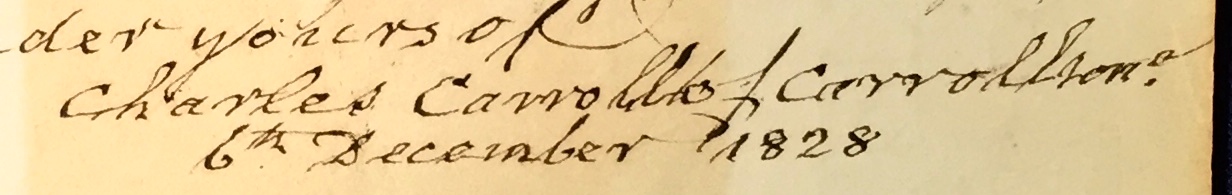 der yours of
Charles Carroll of Carrollton
6th December 1828